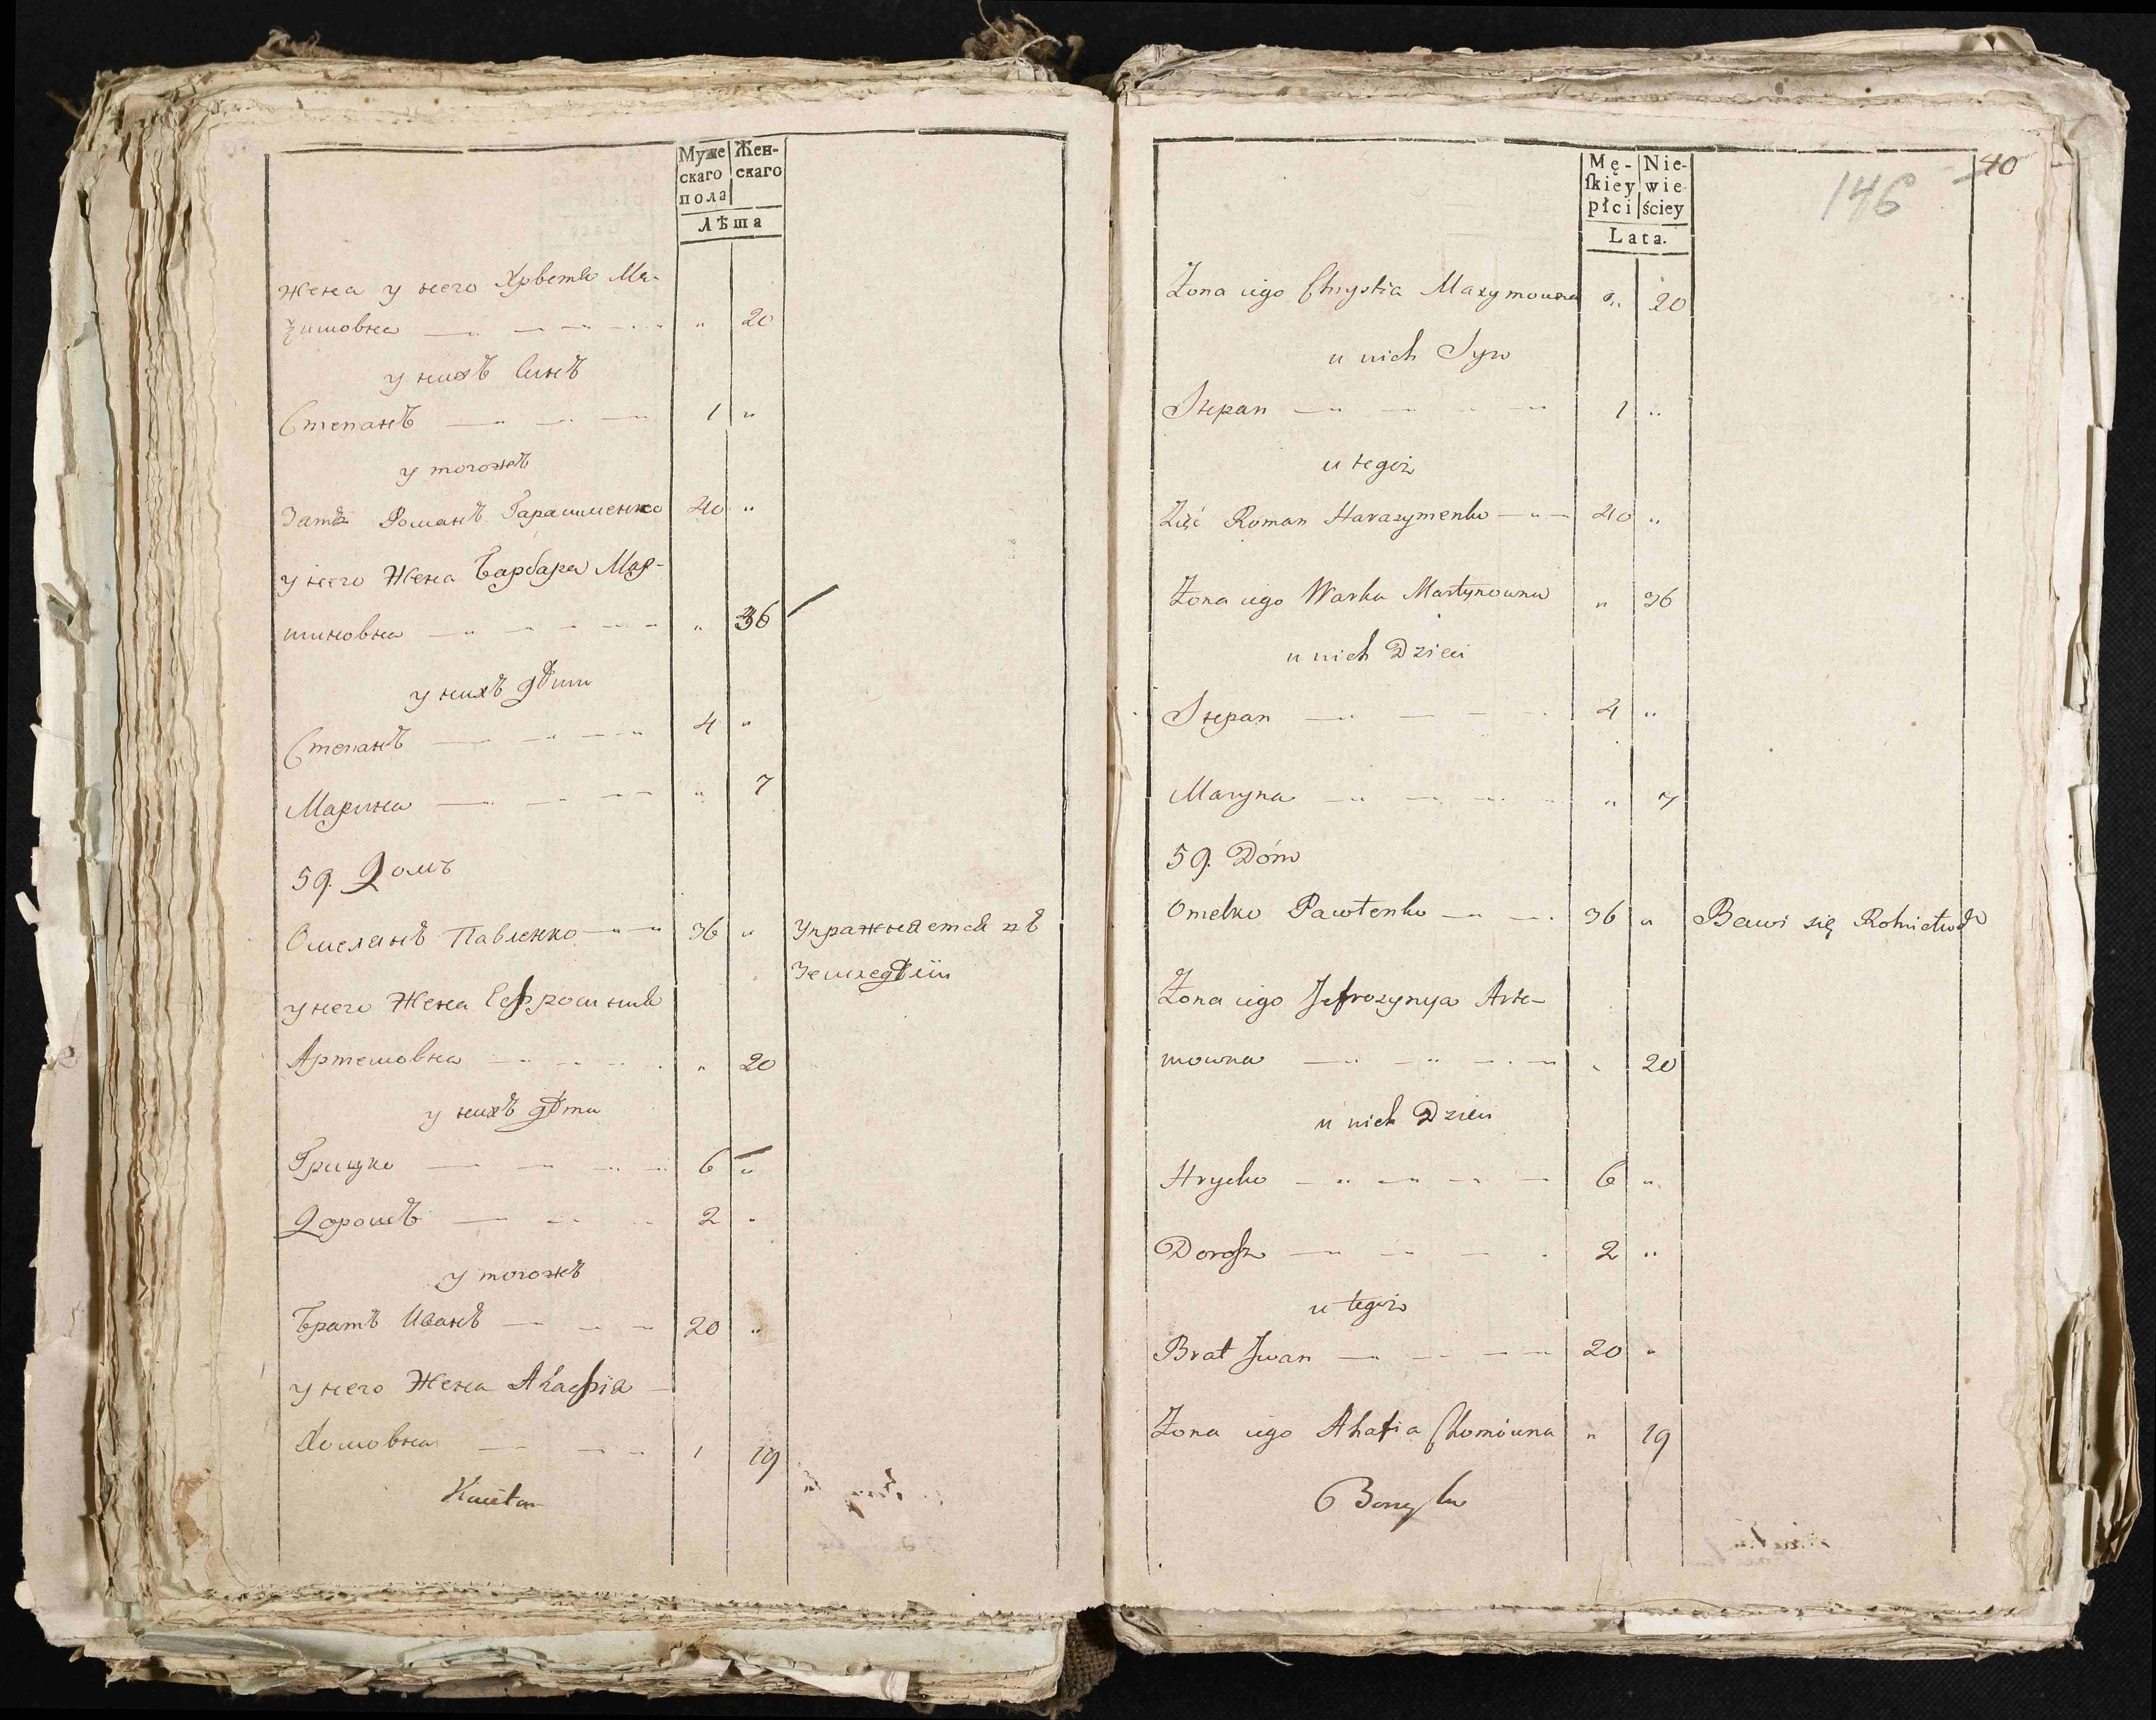 Муже
скаго
пола
Жен-
скаго
Лѣта
Жена у него Хрветя Ма-
ξимовна — „ 20
у нихъ Синъ
Степанъ — 1 „
у тогожъ
Зать Романъ Гарасименко 40 „
у него Жена Барбара Мар-
тиновна — „ 36
у нихъ Дѣти
Степанъ — 4 „
Марина — „ 7
59. Домъ
Омелянъ Павленко — 36 „ Упражняется въ
Земледѣліи
у него Жена Ефросиния
Артемовна — „ 20
у нихъ Дѣти
Грицко — 6 „
Дорошъ — 2 „
у тогожъ
Братъ Иванъ — 20 „
у него Жена Агафія —
Хомовна — 19
Mę-
skiey
płci
Nie-
wie-
ściey
Lata.
146
40
Żona iego Chrystia Maxymowna „ 20
u nich Syn
Stepan — 1 „
u tegoż
Zięć Roman Harasymenko — 40 „
Żona iego Warka Martynowna „ 36
u nich Dzieci
Stepan — 4 „
Maryna — „ 7
59. Dóm
Omelko Pawłenko — 36 „ Bawi się Rolnictwem
Żona iego Jefrozynya Arte-
mowna — „ 20
u nich Dzieci
Hrycko — 6 „
Dorosz — 2 „
u tegoż
Brat Jwan — 20 „
Żona iego Ahafia Chomówna „ 19